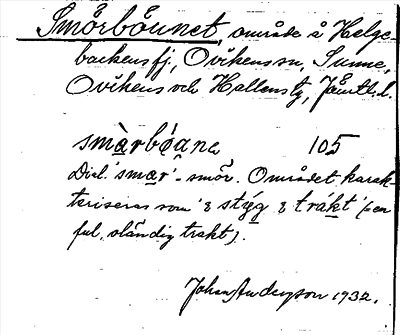 Smörbåunet, område å Helge-
backens fj., Ovikens sn, Sunne,
Ovikens och Hallens tg, Jämtl. l.
smàrbǻane 105
Dial. 'smær' - smör. Området karak-
teriseras som 'ɜ stýg ɜ trakt' (= en
ful, eländig trakt).
Johan Anderzson 1932.